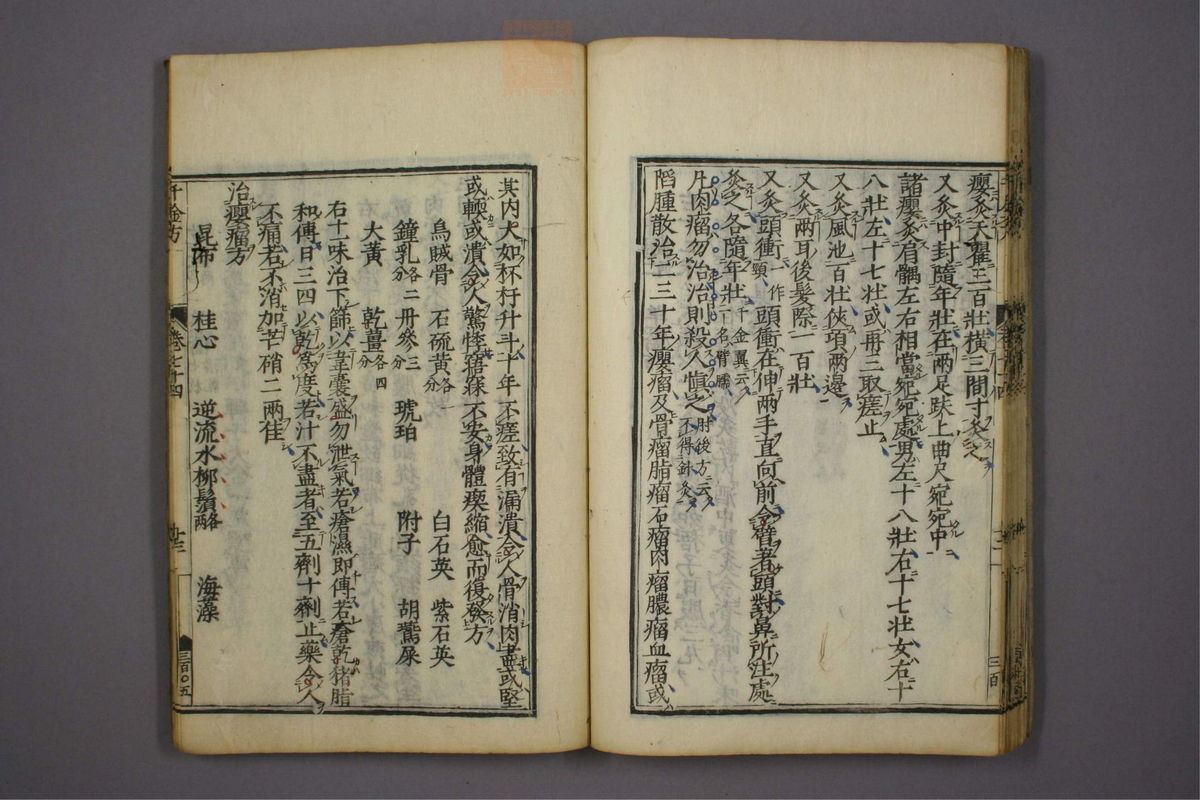 癭灸天瞿三百壯橫三間寸灸之
又灸中封隨年壯在兩足趺上曲尺宛宛中
諸癭灸肩髃左右相當宛宛處男左十八壯右十七壯女右十
八壯左十七壯或再三取瘥止
又灸風池百壯俠項兩邊
又灸兩耳後髮際一百壯
又灸頭衝一作頸衝頭衝在伸兩手直向前令臂著頭對鼻所注處
灸之各隨年壯千金翼云一名臂臑
凡肉瘤勿治治則殺人愼之肘後方云不得針灸
陷腫散治二三十年癭瘤及骨瘤脂瘤石瘤肉瘤膿瘤血瘤或
三百
其內大如杯杅升斗十年不瘥致有漏潰令人骨消肉盡或堅
或軟或潰令人驚悸寤寐不安身體瘈縮愈而復發方
烏賊骨 石硫黃各一分 白石英 紫石英
鐘乳各二分 丹參三分 琥珀 附子 胡鷰屎
大黃 乾薑各四分
右十一味治下篩以韋囊盛勿泄氣若瘡濕即傅若瘡乾豬脂
和傅日三四以乾爲度若汁不盡者至五劑十劑止藥令人
不痛若不消加芒硝二兩佳
治癭瘤方
昆布 桂心 逆流水柳鬚各一兩 海藻
千金方
卷二十四
三百〇五